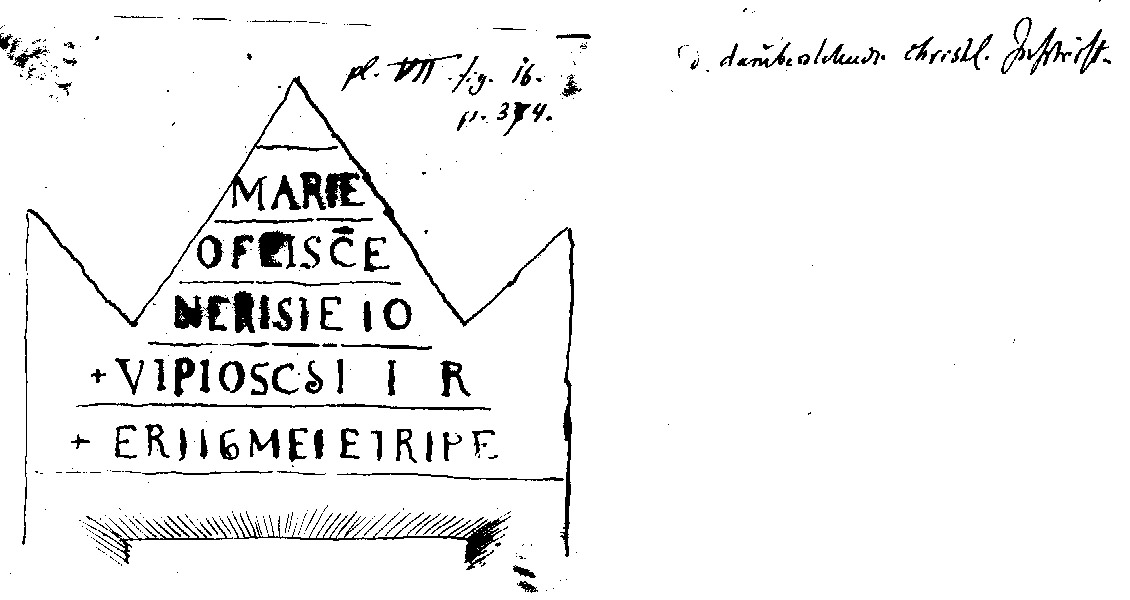 pl. VII fig. 16.
p. 374.
d. darüberstehende christl. Inschrift.
MARIE
OFRISC̄E
NERISIE IO
+ VIPIOSCSI I R
+ ERIIGMEIETRIPE